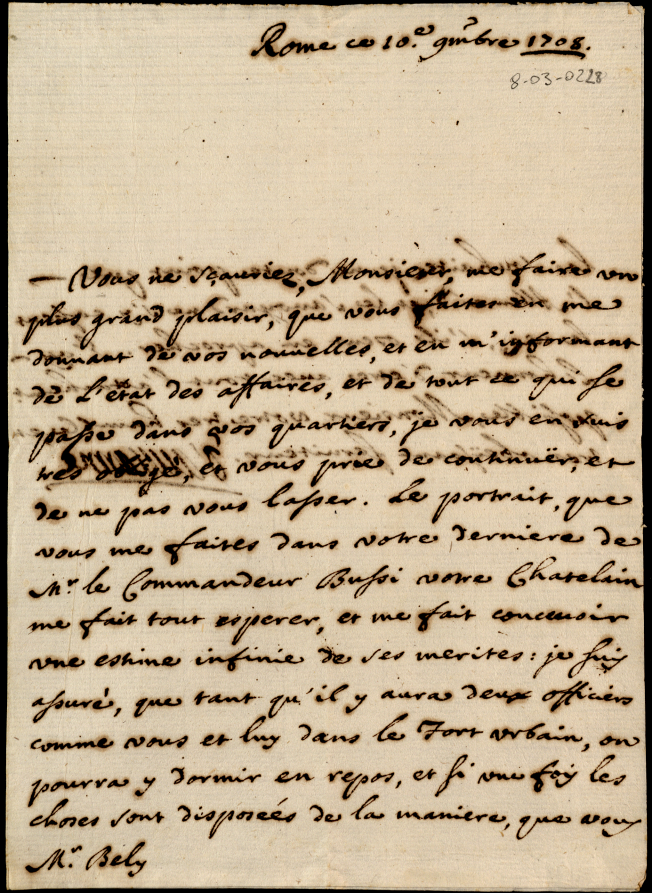 Rome ce 10.e 9mbre 1708.
8-03-0228
— Vous ne sçauriez, Monsieur, me faire un
plus grand plaisir, que vous faites en me
donnant de vos nouvelles, et en m'informant
de L'état des affaires, et de tout ce qui se
passe dans vos quartiers, je vous en suis
tres obligé, et vous prie de continuër, et
de ne pas vous lasser. Le portrait, que
vous me faites dans votre derniere de
Mr. le Commandeur Bussi votre Chatelain
me fait tout esperer, et me fait concevoir
une estime infinie de ses merites: je suis
assuré, que tant qu'il y aura deux officiers
comme vous et luy dans le Fort urbain, on
pourra y dormir en repos, et si une foy les
choses sont disposées de la maniere, que vous
Mr. Bely